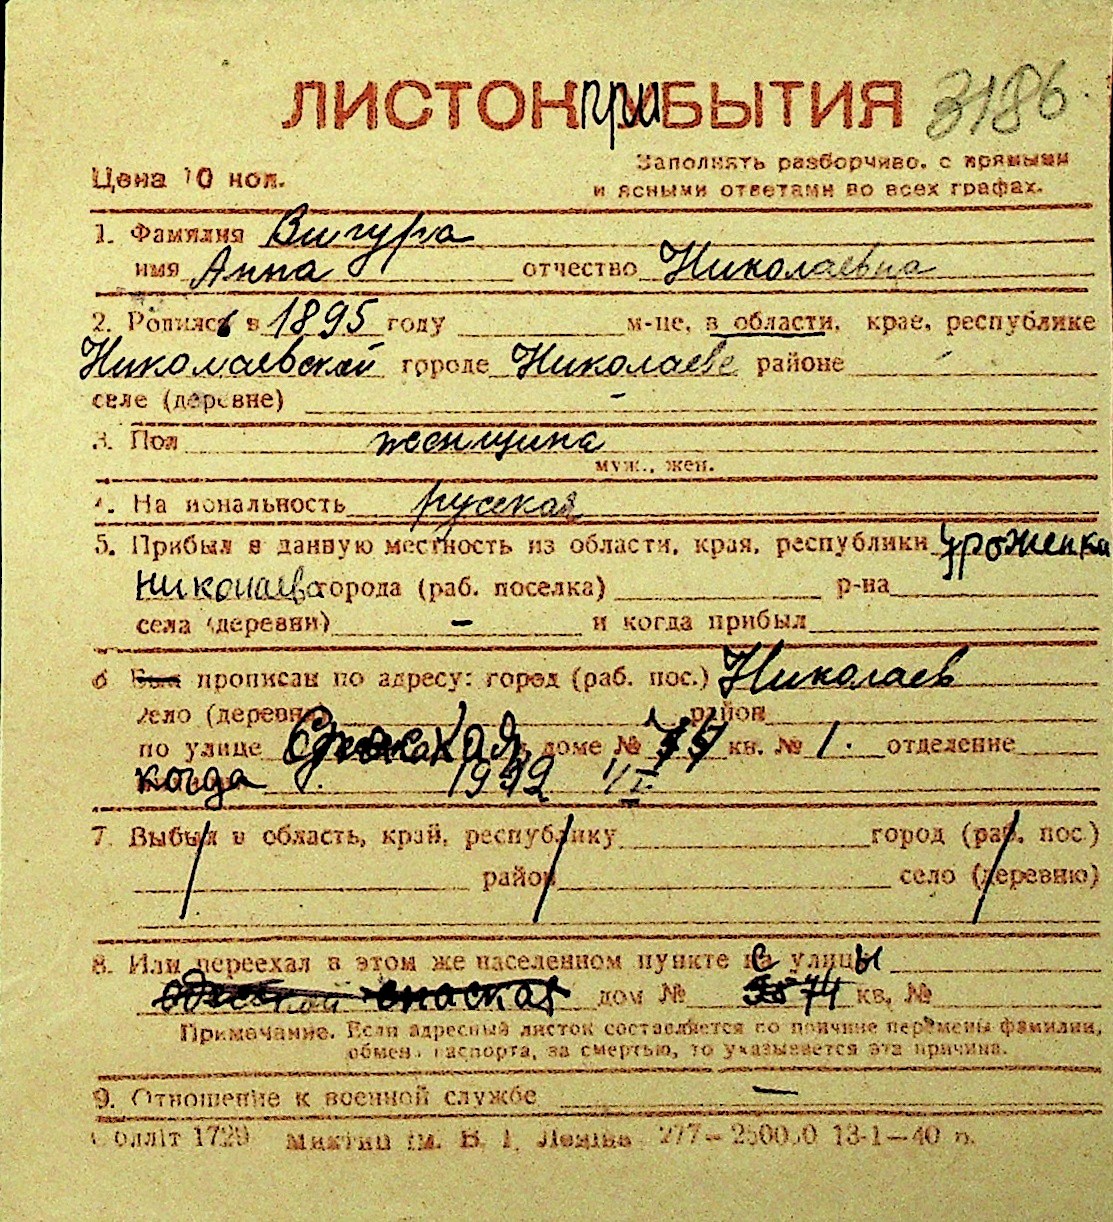 ЛИСТОК ПРИБЫТИЯ 3186
Цена 10 коп.
Заполнять разборчиво, с прямыми
и ясными ответами во всех графах.
1. Фамилия Вигура
имя Анна отчество Николаевна
2. Родился в 1895 году м-це, в области, крае, республике
Николаевской городе Николаеве районе
селе (деревне) -
3. Пол женщина
муж., жен.
4. Национальность русская
5. Прибыл в данную местность из области, края, республики уроженка
Николаева города (раб. поселка) р-на
села (деревни) - и когда прибыл
6 Был прописан по адресу: город (раб. пос.) Николаев
село (деревня) район
по улице Спасская доме № кв. № 1. отделение
когда 1942 VI.
7. Выбыл в область, край, республику город (раб. пос.)
район село (деревню)
8. Или переехал в этом же населенном пункте с улицы
одесской спаская дом № 74 кв. №
Примечание. Если адресный листок составляется по причине перемены фамилии,
обмена паспорта, за смертью, то указывается эта причина.
9. Отношение к военной службе —
Облліт 1729 им. В. І. Леніна 277—250000 13-1—40 п.